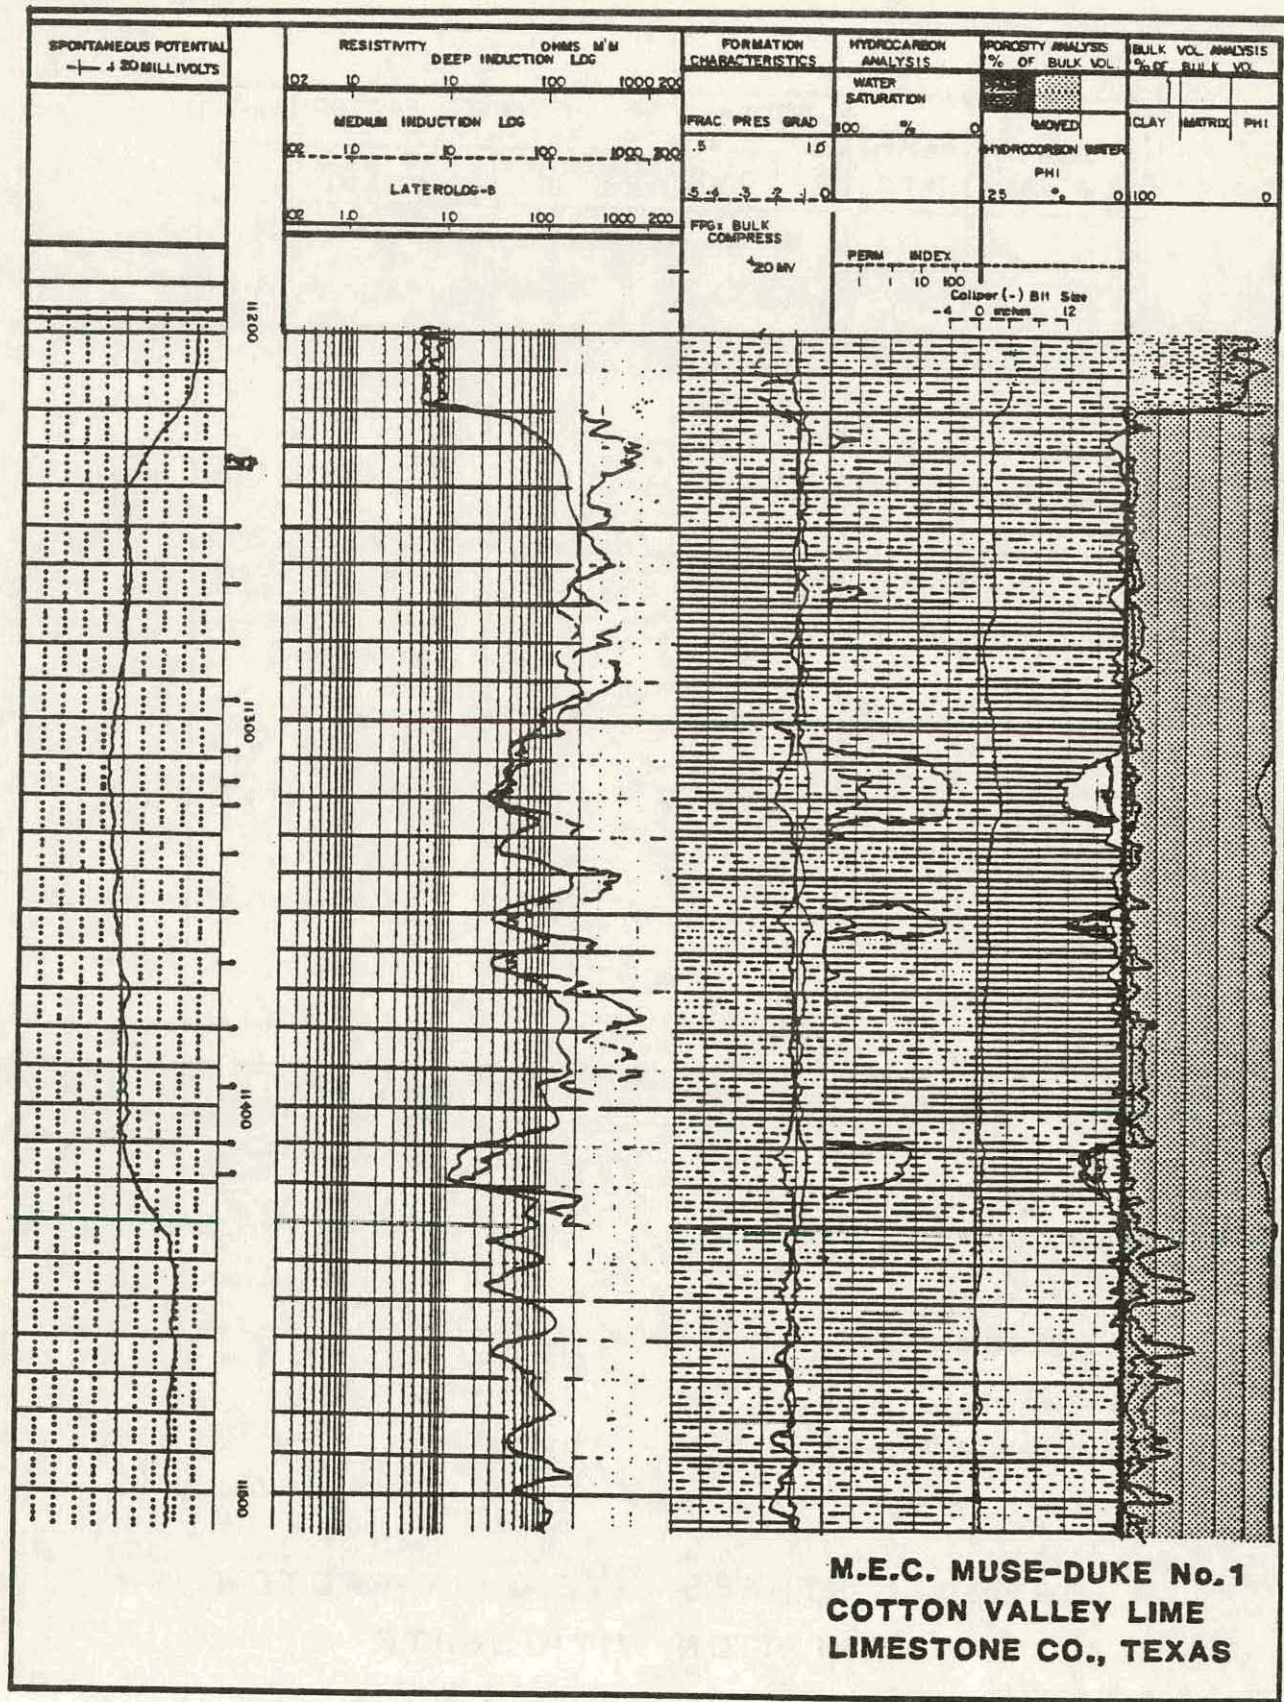 SPONTANEOUS POTENTIAL
20 MILLIVOLTS
RESISTIVITY OHMS M'M
DEEP INDUCTION LOG
.02 1.0 10 100 1000 200
MEDIUM INDUCTION LOG
.02 1.0 10 100 1000 200
LATEROLOG-8
.02 1.0 10 100 1000 200
FORMATION
CHARACTERISTICS
FRAC. PRES GRAD
.5 1.0
.5 .4 .3 .2 .1 0
FPGx BULK
COMPRESS
20 MV
HYDROCARBON
ANALYSIS
WATER
SATURATION
100 % 0
PERM INDEX
.1 1 10 100
Caliper (-) Bit Size
-4 0 inches 12
POROSITY ANALYSIS
% OF BULK VOL.
MOVED
HYDROCORBON WATER
PHI
25 % 0
BULK VOL ANALYSIS
% OF BULK VOL
CLAY MATRIX PHI
100 0
11200
11300
11400
11500
M.E.C. MUSE-DUKE No.1
COTTON VALLEY LIME
LIMESTONE CO., TEXAS